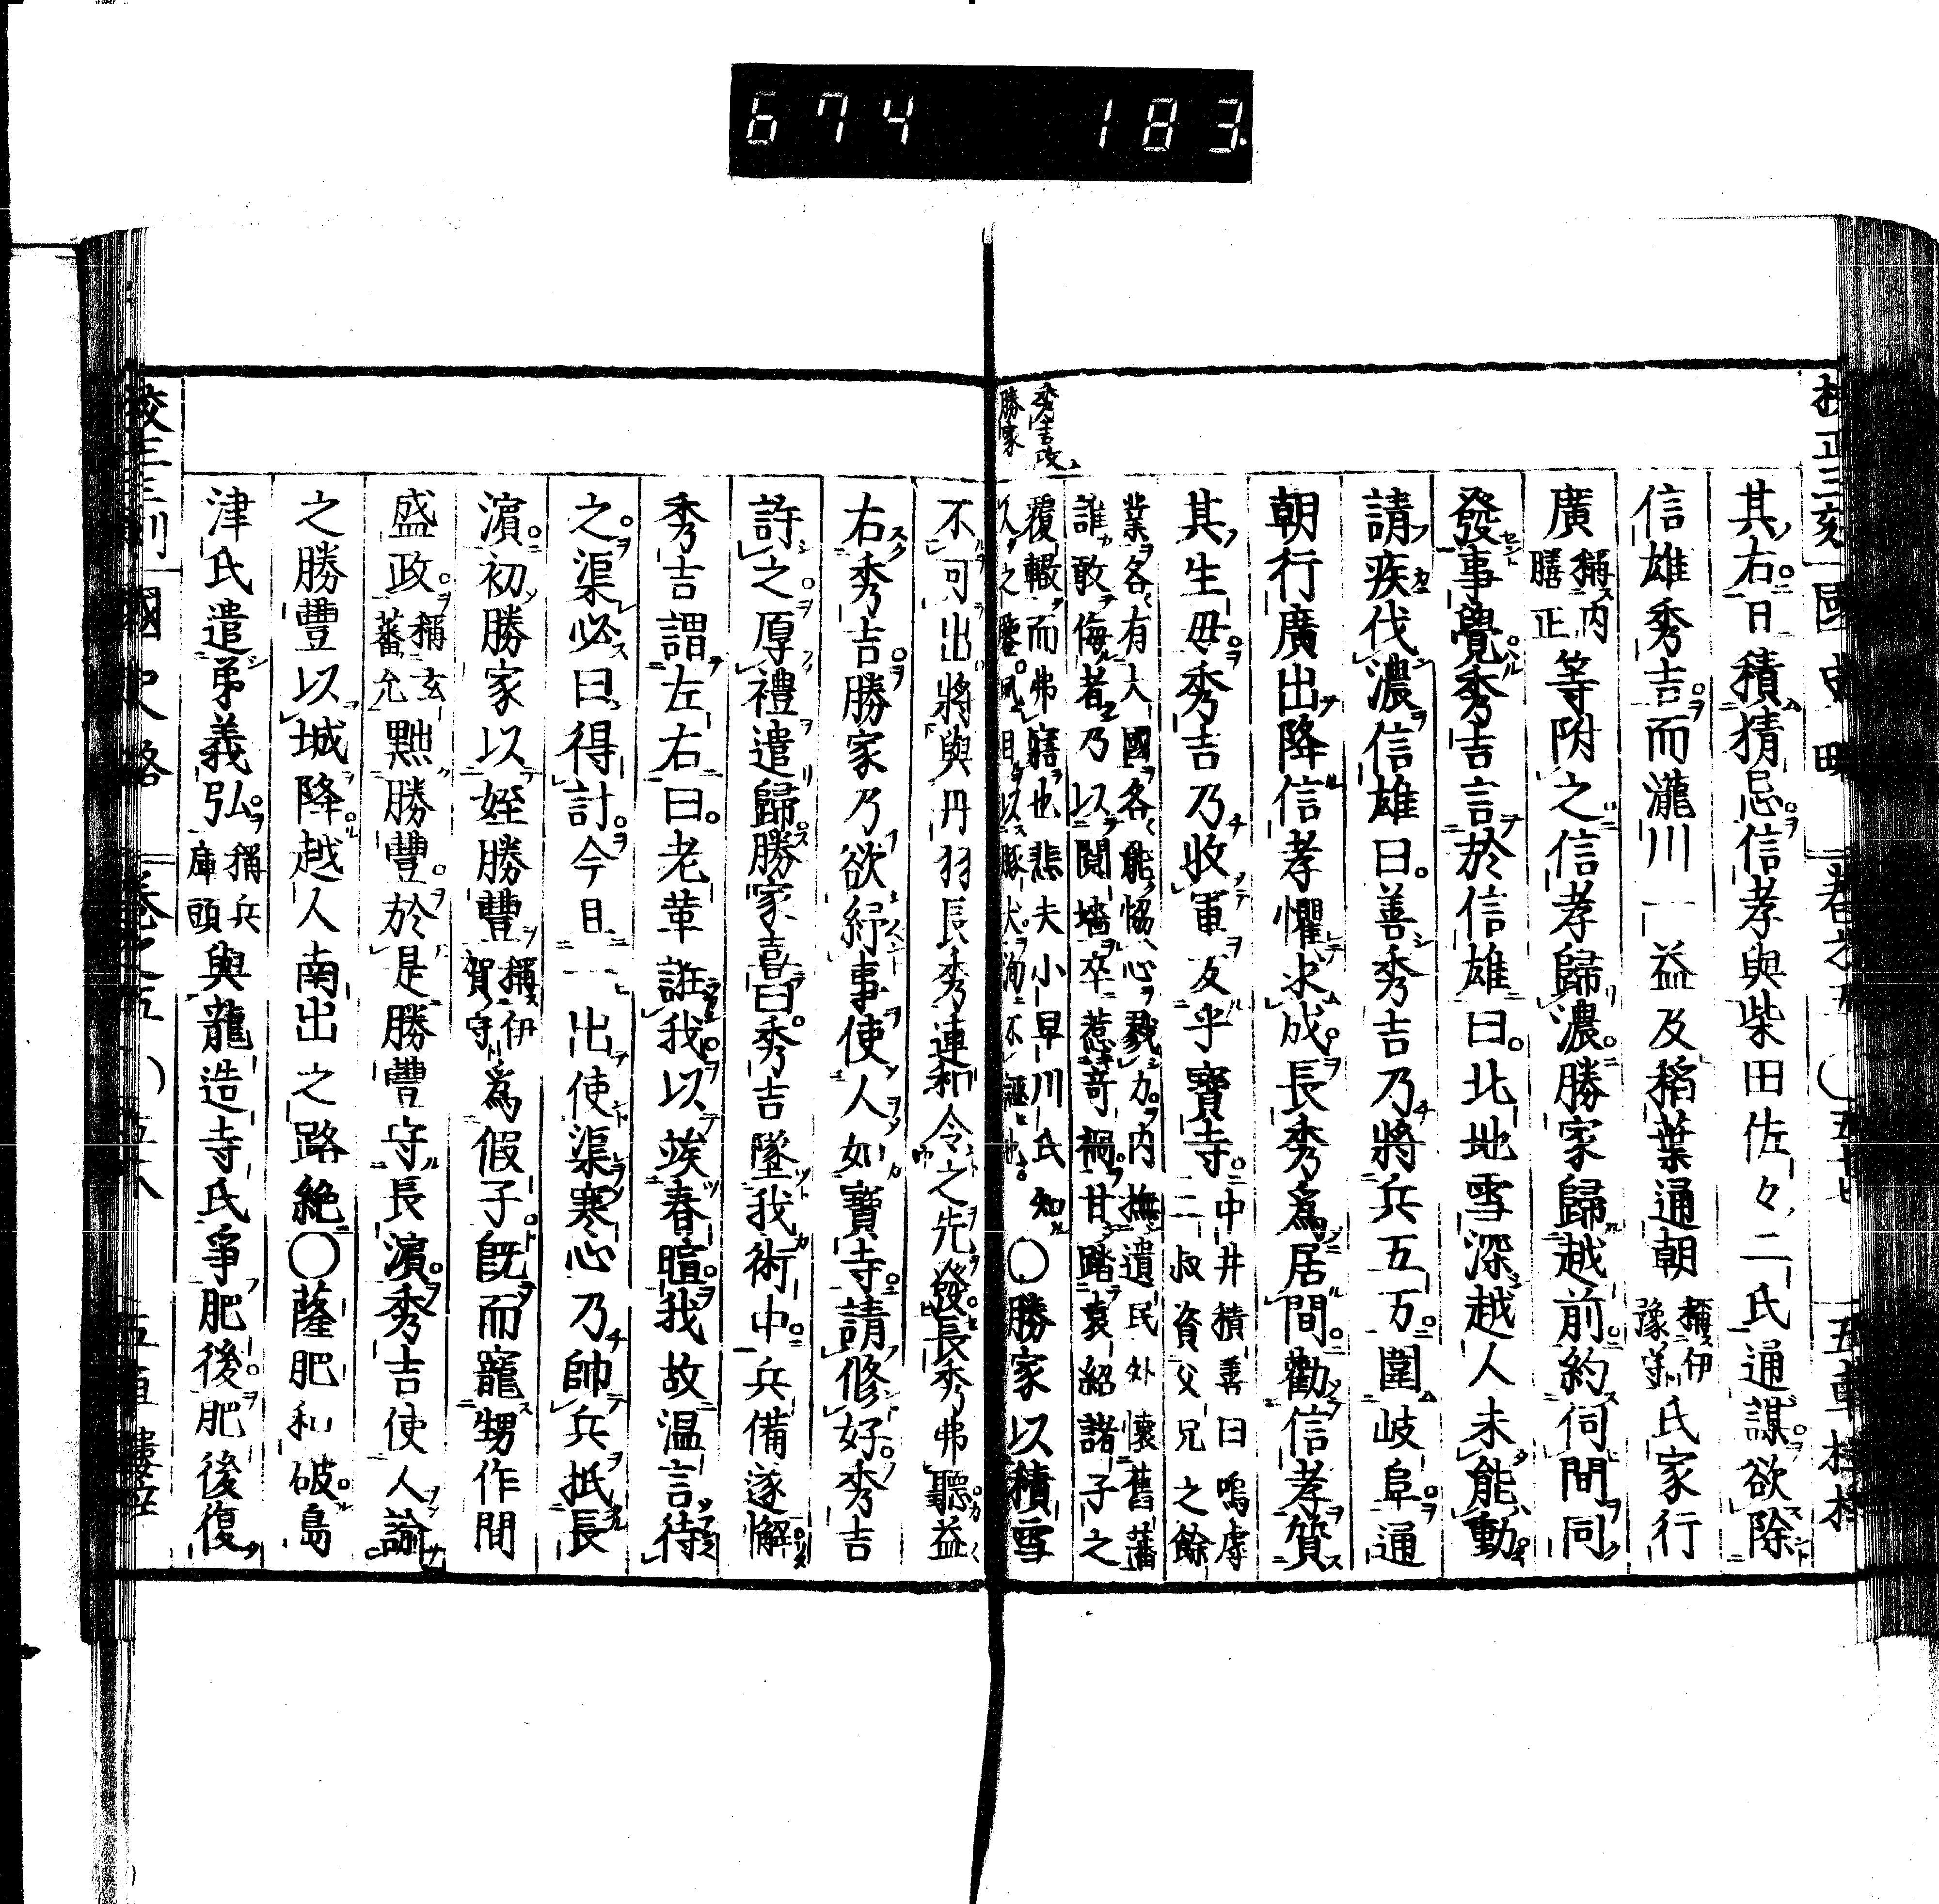 674 183
校正三刻 國史略 卷之五 ○五十七 五車樓梓
其右日積猜忌信孝與柴田佐々二氏通謀欲除
信雄秀吉而瀧川一益及稻葉通朝稱伊豫守氏家行
廣稱内膳正等附之信孝歸濃勝家歸越前約伺間同
發事覺秀吉言於信雄曰北地雪深越人未能動
請疾伐濃信雄曰善秀吉乃將兵五万圍岐阜通
朝行廣出降信孝懼求成長秀爲居間勸信孝質
其生母秀吉乃收軍反乎寶寺中井積善曰嗚虖二叔資父兄之餘
業各有大國各能恊心戮力内撫遺民外懷舊藩
誰敢侮者乃以鬩墻卒惹奇禍甘蹈袁紹諸子之
覆轍而弗寤也悲夫小早川氏知
人之鑒夙目以豚犬洵不誣也○勝家以積雪
秀吉攻
勝家
不可出將與丹羽長秀連和令之先發長秀弗聽益
右秀吉勝家乃欲紓事使人如寶寺請修好秀吉
許之厚禮遣歸勝家喜曰秀吉墜我術中兵備遂懈
秀吉謂左右曰老革誑我以竢春暄我故温言待
之渠必曰得計今且一出使渠寒心乃帥兵抵長
濵初勝家以姪勝豐稱伊賀守爲假子既而寵甥作間
盛政稱玄蕃允黜勝豐於是勝豐守長濵秀吉使人諭
之勝豐以城降越人南出之路絶○薩肥和破島
津氏遣弟義弘稱兵庫頭與龍造寺氏爭肥後肥後復
國史略 卷之五 五車樓梓